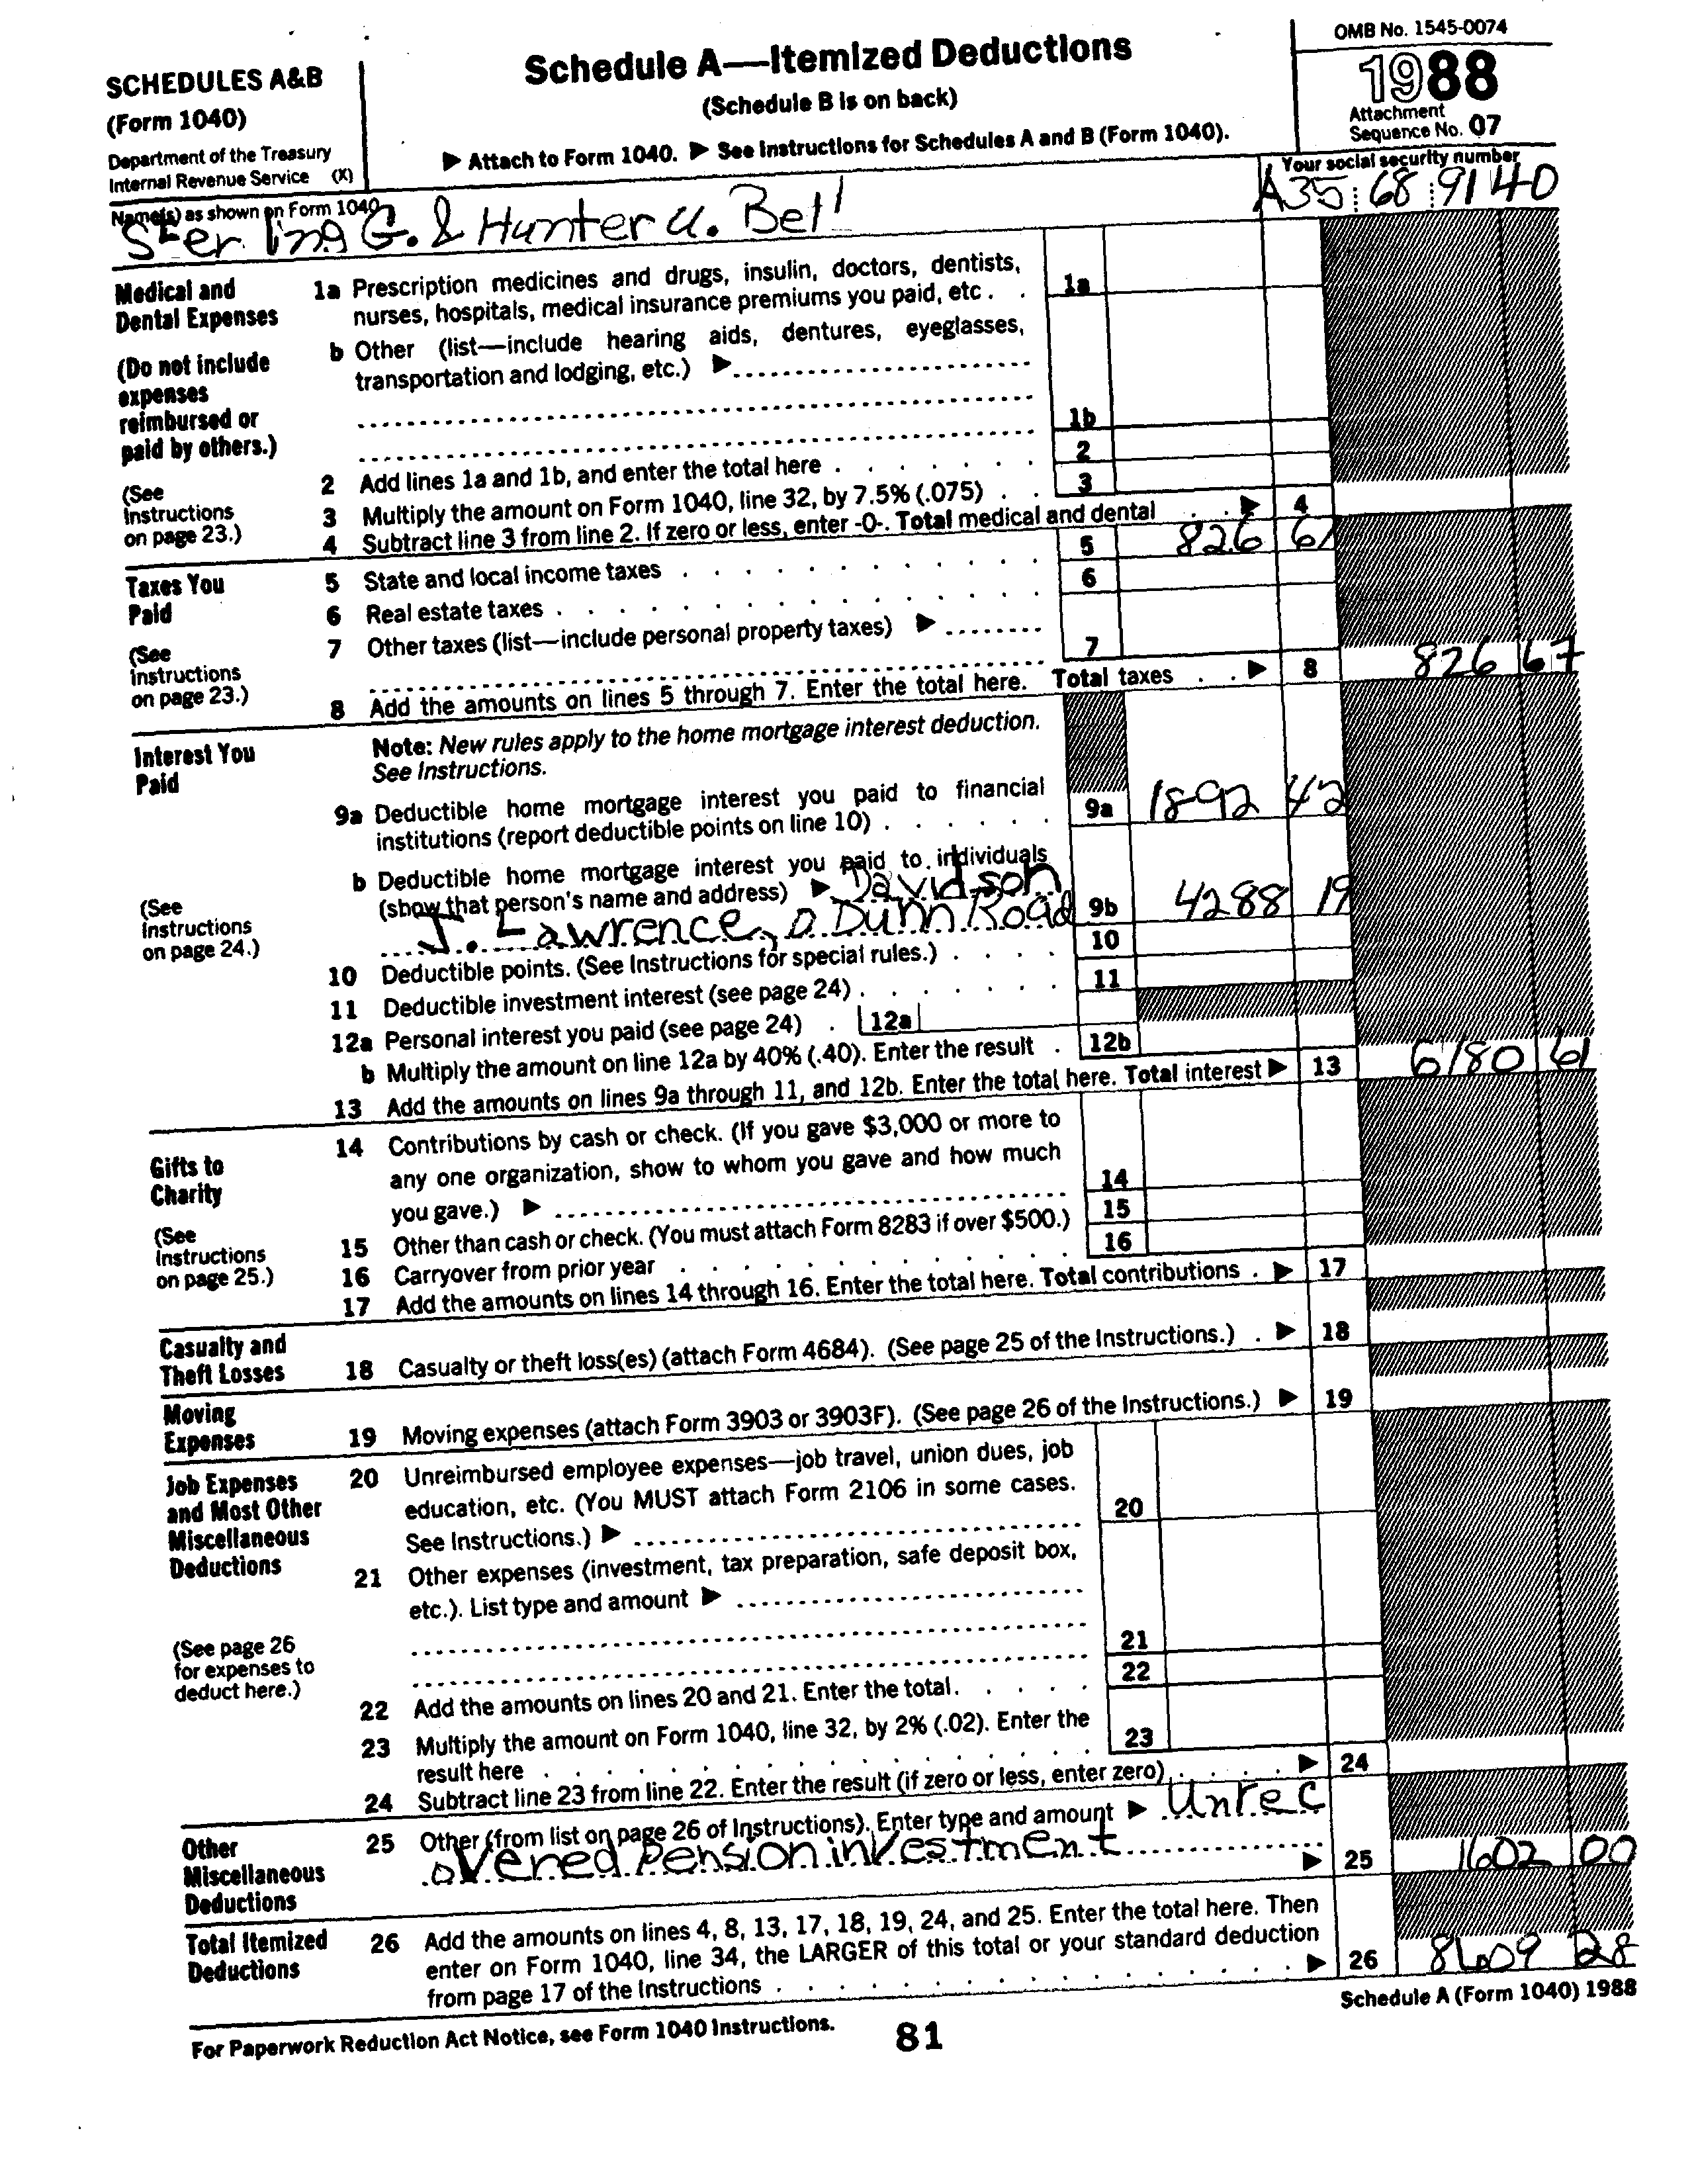 SCHEDULES A&B
(Form 1040)
Department of the Treasury
Internal Revenue Service (X)
Schedule A—Itemized Deductions
(Schedule B is on back)
▶ Attach to Form 1040. ▶ See Instructions for Schedules A and B (Form 1040).
OMB No. 1545-0074
1988
Attachment
Sequence No. 07
Name(s) as shown on Form 1040
Sterling G. & Hunter U. Bell
Your social security number
A35 68 9140
Medical and
Dental Expenses
(Do not include
expenses
reimbursed or
paid by others.)
(See
Instructions
on page 23.)
1a Prescription medicines and drugs, insulin, doctors, dentists,
nurses, hospitals, medical insurance premiums you paid, etc . . 1a
b Other (list—include hearing aids, dentures, eyeglasses,
transportation and lodging, etc.) ▶
1b
2 Add lines 1a and 1b, and enter the total here . . . . . . . 2
3 Multiply the amount on Form 1040, line 32, by 7.5% (.075) . . 3
4 Subtract line 3 from line 2. If zero or less, enter -0-. Total medical and dental . . ▶ 4
Taxes You
Paid
(See
Instructions
on page 23.)
5 State and local income taxes . . . . . . . . . . . . 5 826 67
6 Real estate taxes . . . . . . . . . . . . . . . 6
7 Other taxes (list—include personal property taxes) ▶
7
8 Add the amounts on lines 5 through 7. Enter the total here. Total taxes . . ▶ 8 826 67
Interest You
Paid
(See
Instructions
on page 24.)
Note: New rules apply to the home mortgage interest deduction.
See Instructions.
9a Deductible home mortgage interest you paid to financial
institutions (report deductible points on line 10) . . . . . . 9a 1892 42
b Deductible home mortgage interest you paid to individuals
(show that person's name and address) ▶ Davidson
J. Lawrence, D Dunn Road 9b 4288 19
10 Deductible points. (See Instructions for special rules.) . . . . 10
11 Deductible investment interest (see page 24) . . . . . . . 11
12a Personal interest you paid (see page 24) . 12a
b Multiply the amount on line 12a by 40% (.40). Enter the result . 12b
13 Add the amounts on lines 9a through 11, and 12b. Enter the total here. Total interest ▶ 13 6180 61
Gifts to
Charity
(See
Instructions
on page 25.)
14 Contributions by cash or check. (If you gave $3,000 or more to
any one organization, show to whom you gave and how much
you gave.) ▶ 14
15 Other than cash or check. (You must attach Form 8283 if over $500.) 15
16 Carryover from prior year . . . . . . . . . . . . 16
17 Add the amounts on lines 14 through 16. Enter the total here. Total contributions . ▶ 17
Casualty and
Theft Losses
18 Casualty or theft loss(es) (attach Form 4684). (See page 25 of the Instructions.) . ▶ 18
Moving
Expenses
19 Moving expenses (attach Form 3903 or 3903F). (See page 26 of the Instructions.) ▶ 19
Job Expenses
and Most Other
Miscellaneous
Deductions
(See page 26
for expenses to
deduct here.)
20 Unreimbursed employee expenses—job travel, union dues, job
education, etc. (You MUST attach Form 2106 in some cases.
See Instructions.) ▶ 20
21 Other expenses (investment, tax preparation, safe deposit box,
etc.). List type and amount ▶
21
22 Add the amounts on lines 20 and 21. Enter the total. . . . . 22
23 Multiply the amount on Form 1040, line 32, by 2% (.02). Enter the
result here . . . . . . . . . . . . . . . 23
24 Subtract line 23 from line 22. Enter the result (if zero or less, enter zero) . . . . . ▶ 24
Other
Miscellaneous
Deductions
25 Other (from list on page 26 of Instructions). Enter type and amount ▶ Unrec
overed Pension investment ▶ 25 1602 00
Total Itemized
Deductions
26 Add the amounts on lines 4, 8, 13, 17, 18, 19, 24, and 25. Enter the total here. Then
enter on Form 1040, line 34, the LARGER of this total or your standard deduction
from page 17 of the Instructions . . . . . . . . . . . . . . ▶ 26 8609 28
For Paperwork Reduction Act Notice, see Form 1040 Instructions.
81
Schedule A (Form 1040) 1988